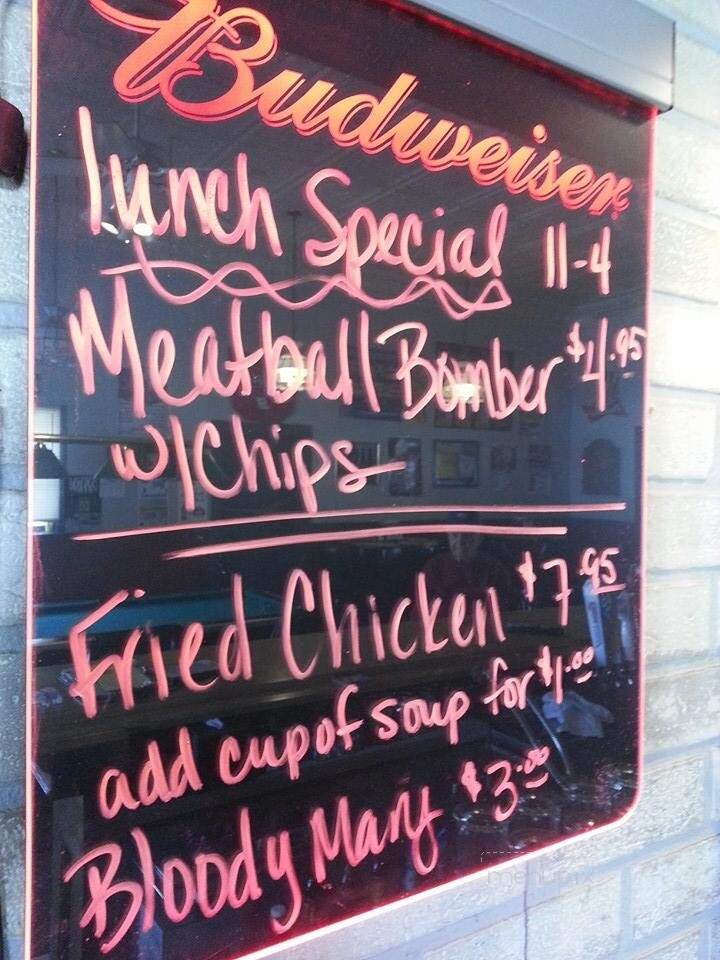 Budweiser
lunch Special 11-4
Meatball Bomber $4.95
w/Chips
Fried Chicken $7.95
add cup of soup for $1.00
Bloody Mary $3.00